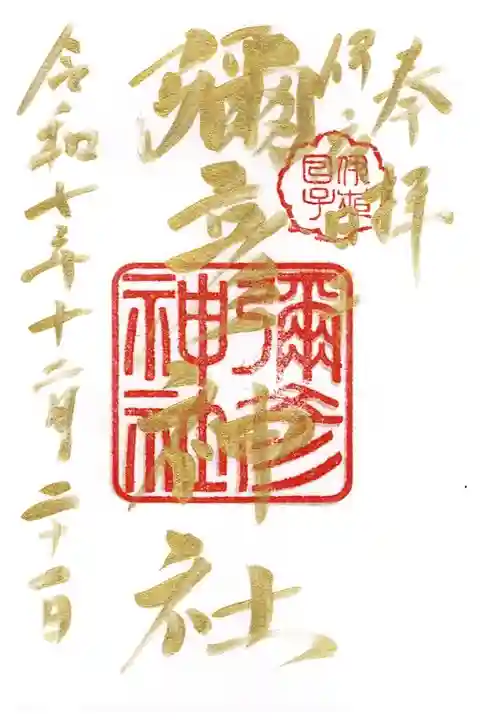 奉拝
伊夜日子
彌彦神社
彌彦神社
令和七年十二月二十一日